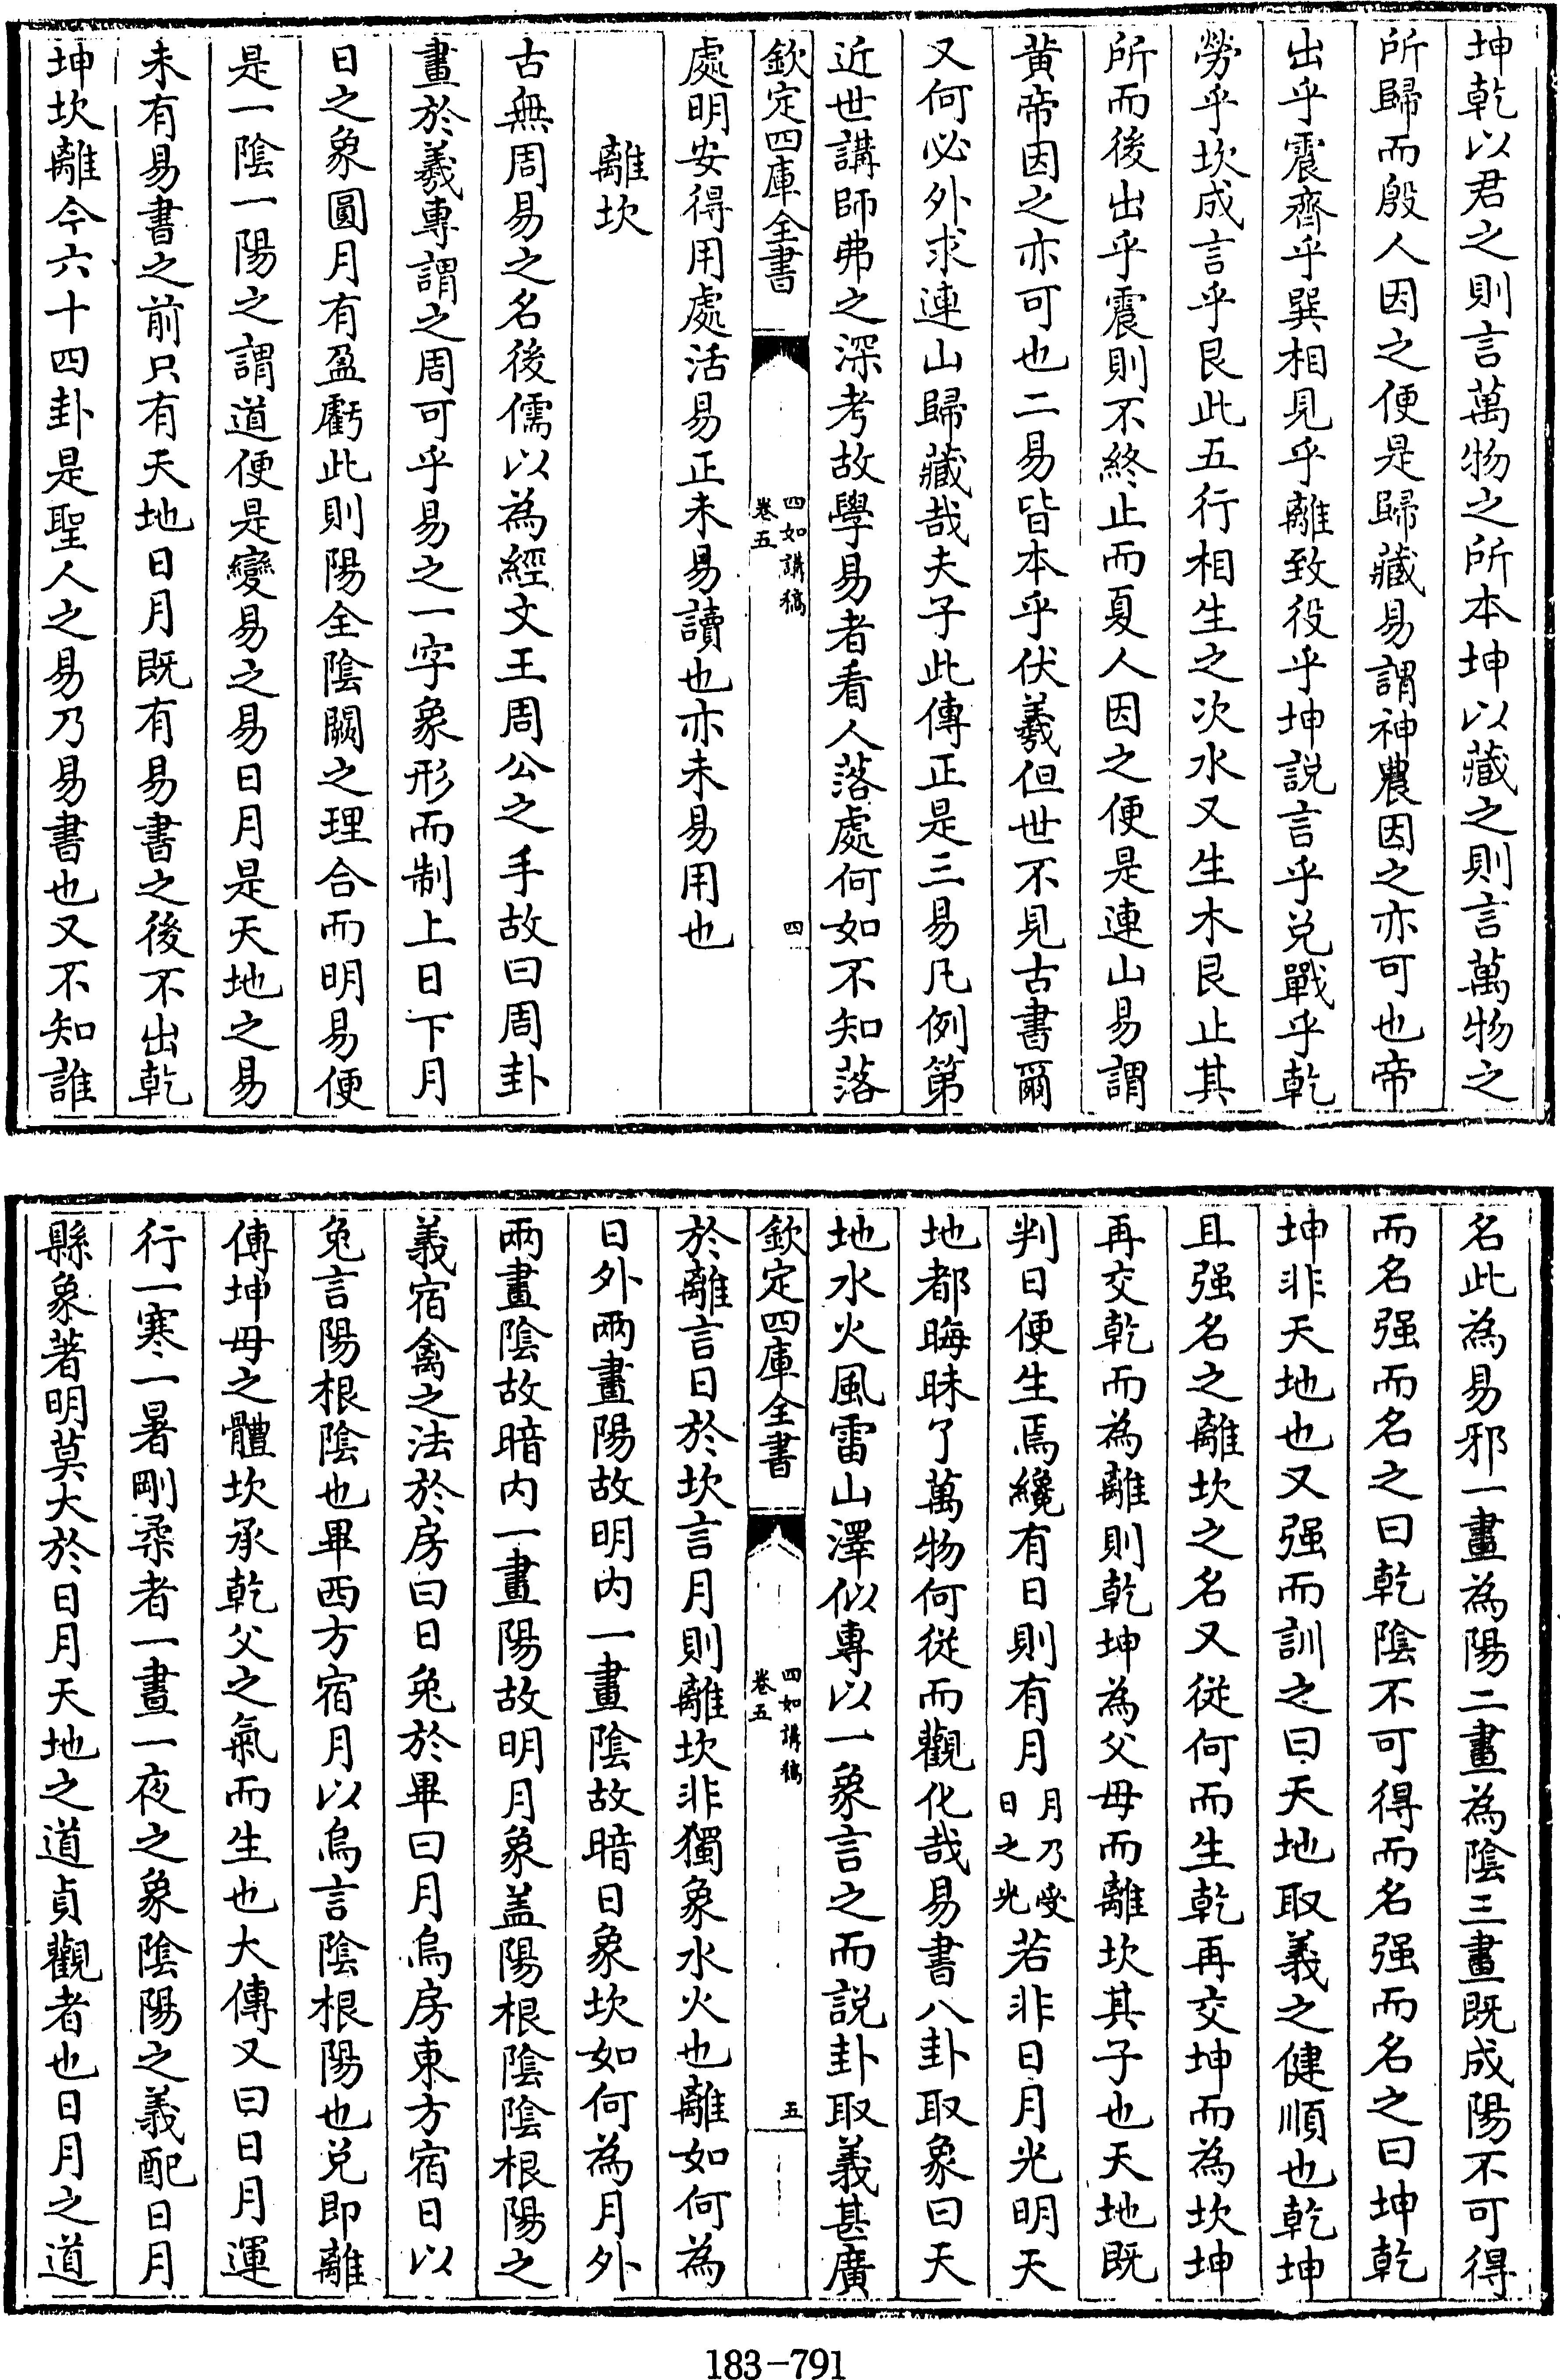 坤乾以君之則言萬物之所本坤以藏之則言萬物之
所歸而殷人因之便是歸藏易謂神農因之亦可也帝
出乎震齊乎巽相見乎離致役乎坤說言乎兌戰乎乾
勞乎坎成言乎艮此五行相生之次水又生木艮止其
所而後出乎震則不終止而夏人因之便是連山易謂
黄帝因之亦可也二易皆本乎伏羲但世不見古書爾
又何必外求連山歸藏哉夫子此傳正是三易凡例第
近世講師弗之深考故學易者看人落處何如不知落
欽定四庫全書
四如講稿
卷五
四
處明安得用處活易正未易讀也亦未易用也
離坎
古無周易之名後儒以為經文王周公之手故曰周卦
畫於羲專謂之周可乎易之一字象形而制上日下月
日之象圓月有盈虧此則陽全陰闕之理合而明易便
是一陰一陽之謂道便是變易之易日月是天地之易
未有易書之前只有天地日月既有易書之後不出乾
坤坎離今六十四卦是聖人之易乃易書也又不知誰
名此為易邪一畫為陽二畫為陰三畫既成陽不可得
而名强而名之曰乾陰不可得而名强而名之曰坤乾
坤非天地也又强而訓之曰天地取義之健順也乾坤
且强名之離坎之名又從何而生乾再交坤而為坎坤
再交乾而為離則乾坤為父母而離坎其子也天地既
判日便生焉纔有日則有月月乃受日之光若非日月光明天
地都晦昧了萬物何從而觀化哉易書八卦取象曰天
地水火風雷山澤似專以一象言之而說卦取義甚廣
欽定四庫全書
四如講稿
卷五
五
於離言日於坎言月則離坎非獨象水火也離如何為
日外兩畫陽故明内一畫陰故暗日象坎如何為月外
兩畫陰故暗内一畫陽故明月象盖陽根陰陰根陽之
義宿禽之法於房曰日兔於畢曰月烏房東方宿日以
兔言陽根陰也畢西方宿月以烏言陰根陽也兌即離
傳坤母之體坎承乾父之氣而生也大傳又曰日月運
行一寒一暑剛柔者一晝一夜之象陰陽之義配日月
縣象著明莫大於日月天地之道貞觀者也日月之道
183-791